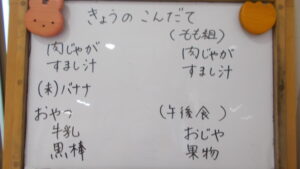 きょうの こんだて
肉じゃが
すまし汁
(未)バナナ
おやつ
牛乳
黒棒
(もも組)
肉じゃが
すまし汁
(午後食)
おじや
果物